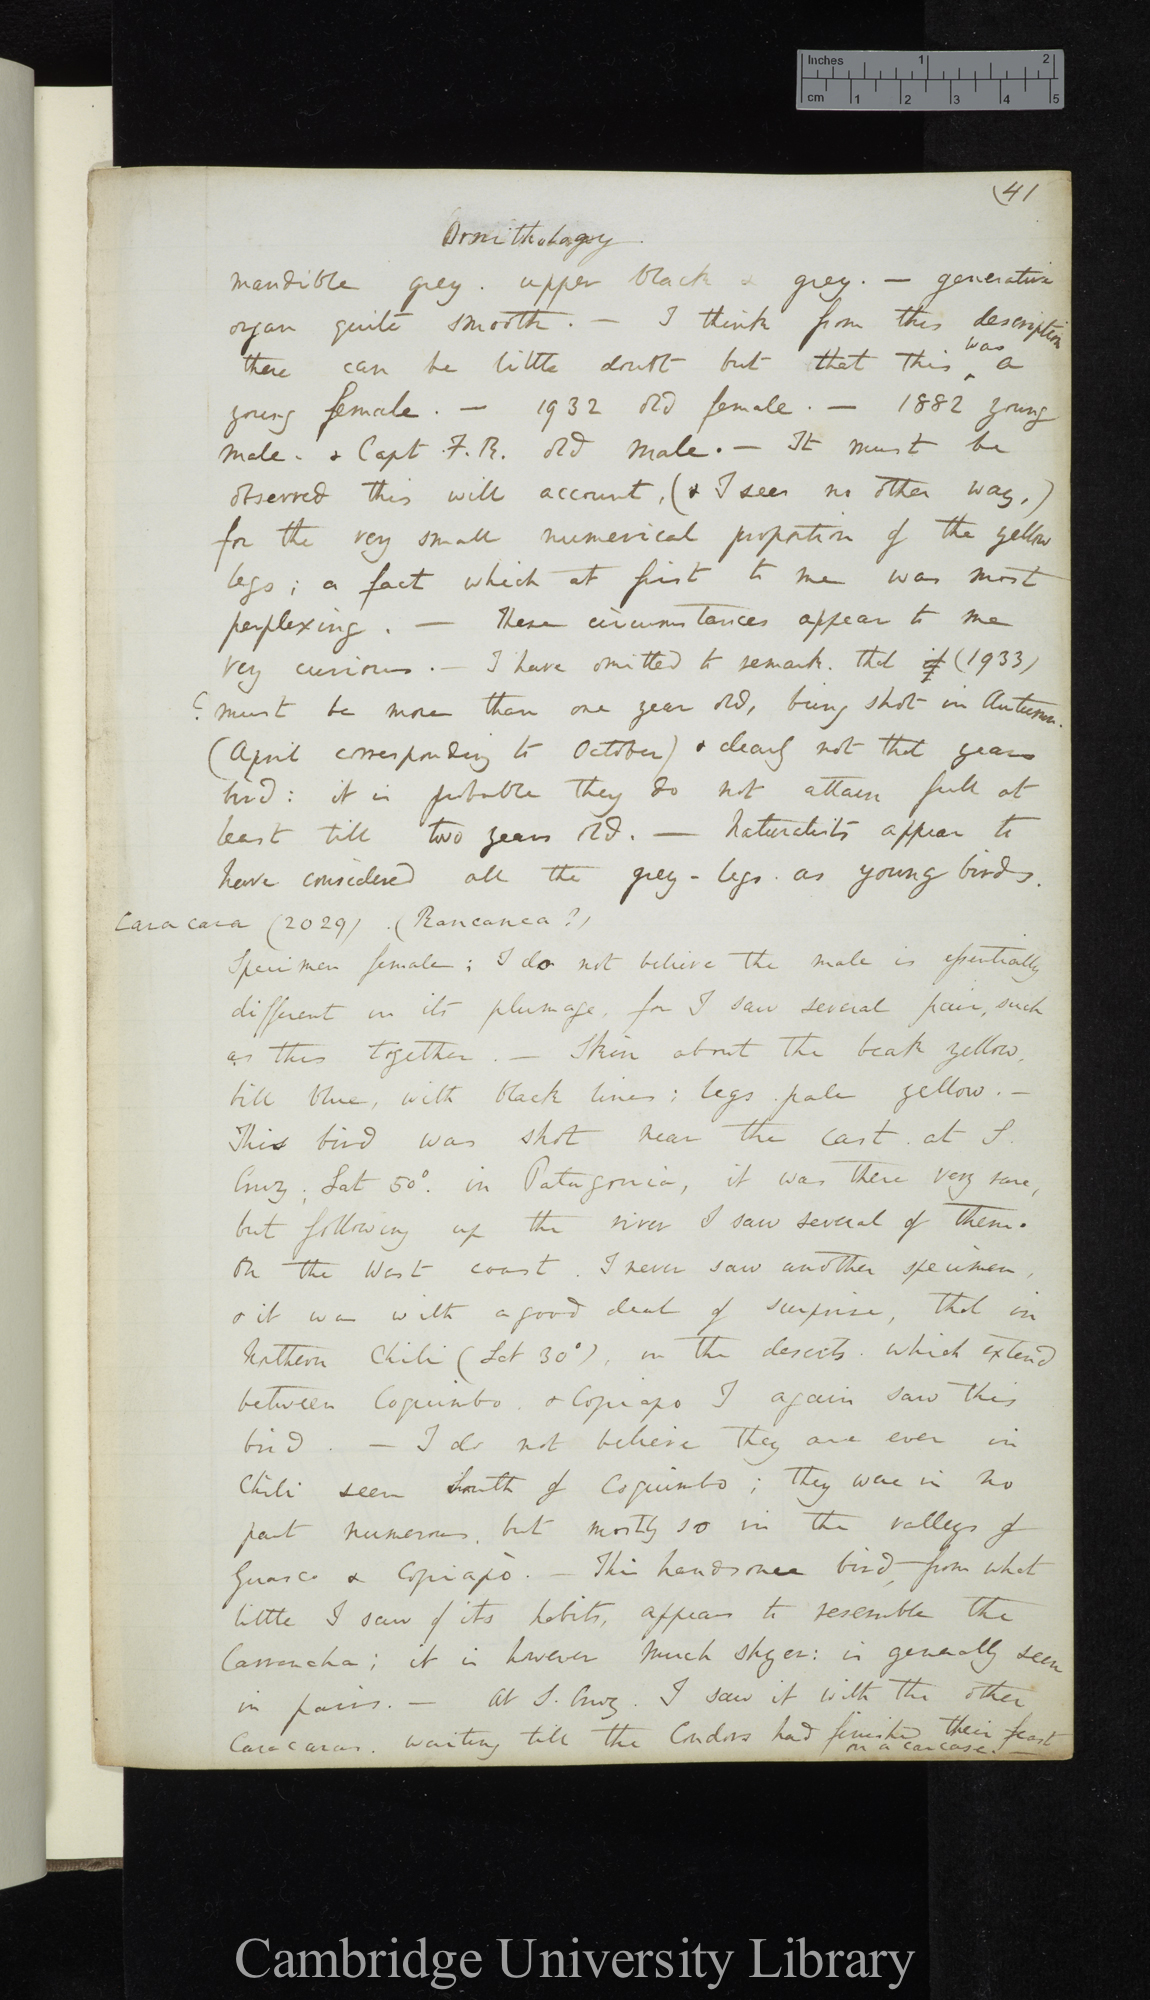 Inches 1 2
cm 1 2 3 4 5
(41
Ornithology
mandible grey. upper black & grey. — generative
organ quite smooth. — I think from this description
there can be little doubt but that this was a
young female. — 1932 old female. — 1882 young
male. & Capt. F.R. old male. — It must be
observed this will account, (& I see no other way,)
for the very small numerical proportion of the yellow
legs; a fact which at first to me was most
perplexing. — These circumstances appear to me
very curious. — I have omitted to remark. that if (1933)
? must be more than one year old, being shot in Autumn.
(April corresponding to October) & clearly not that years
bird: it is probable they do not attain full at
least till two years old. — Naturalists appear to
have considered all the grey-legs. as young birds.
Caracara (2029) . (Rancanca?)
Specimen female; I do not believe the male is essentially
different in its plumage, for I saw several pair, such
as this together. — Skin about the beak yellow,
bill blue, with black lines; legs pale yellow. —
This bird was shot near the cast. at S.
Cruz; Lat 50°. in Patagonia, it was there very rare,
but following up the river I saw several of them.
On the West coast. I never saw another specimen,
& it was with a good deal of surprise, that in
Northern Chili (Lat 30°), in the deserts. which extend
between Coquimbo. & Copiapo I again saw this
bird. — I do not believe they are ever in
Chili seen South of Coquimbo; they were in no
part numerous, but mostly so in the valleys of
Guasco & Copiapò. — This handsome bird, from what
little I saw of its habits, appears to resemble the
Carrancha; it is however much shyer: is generally seen
in pairs. — At S. Cruz. I saw it with the other
Caracaras. waiting till the Condors had finished their feast
on a carcase. —
Cambridge University Library